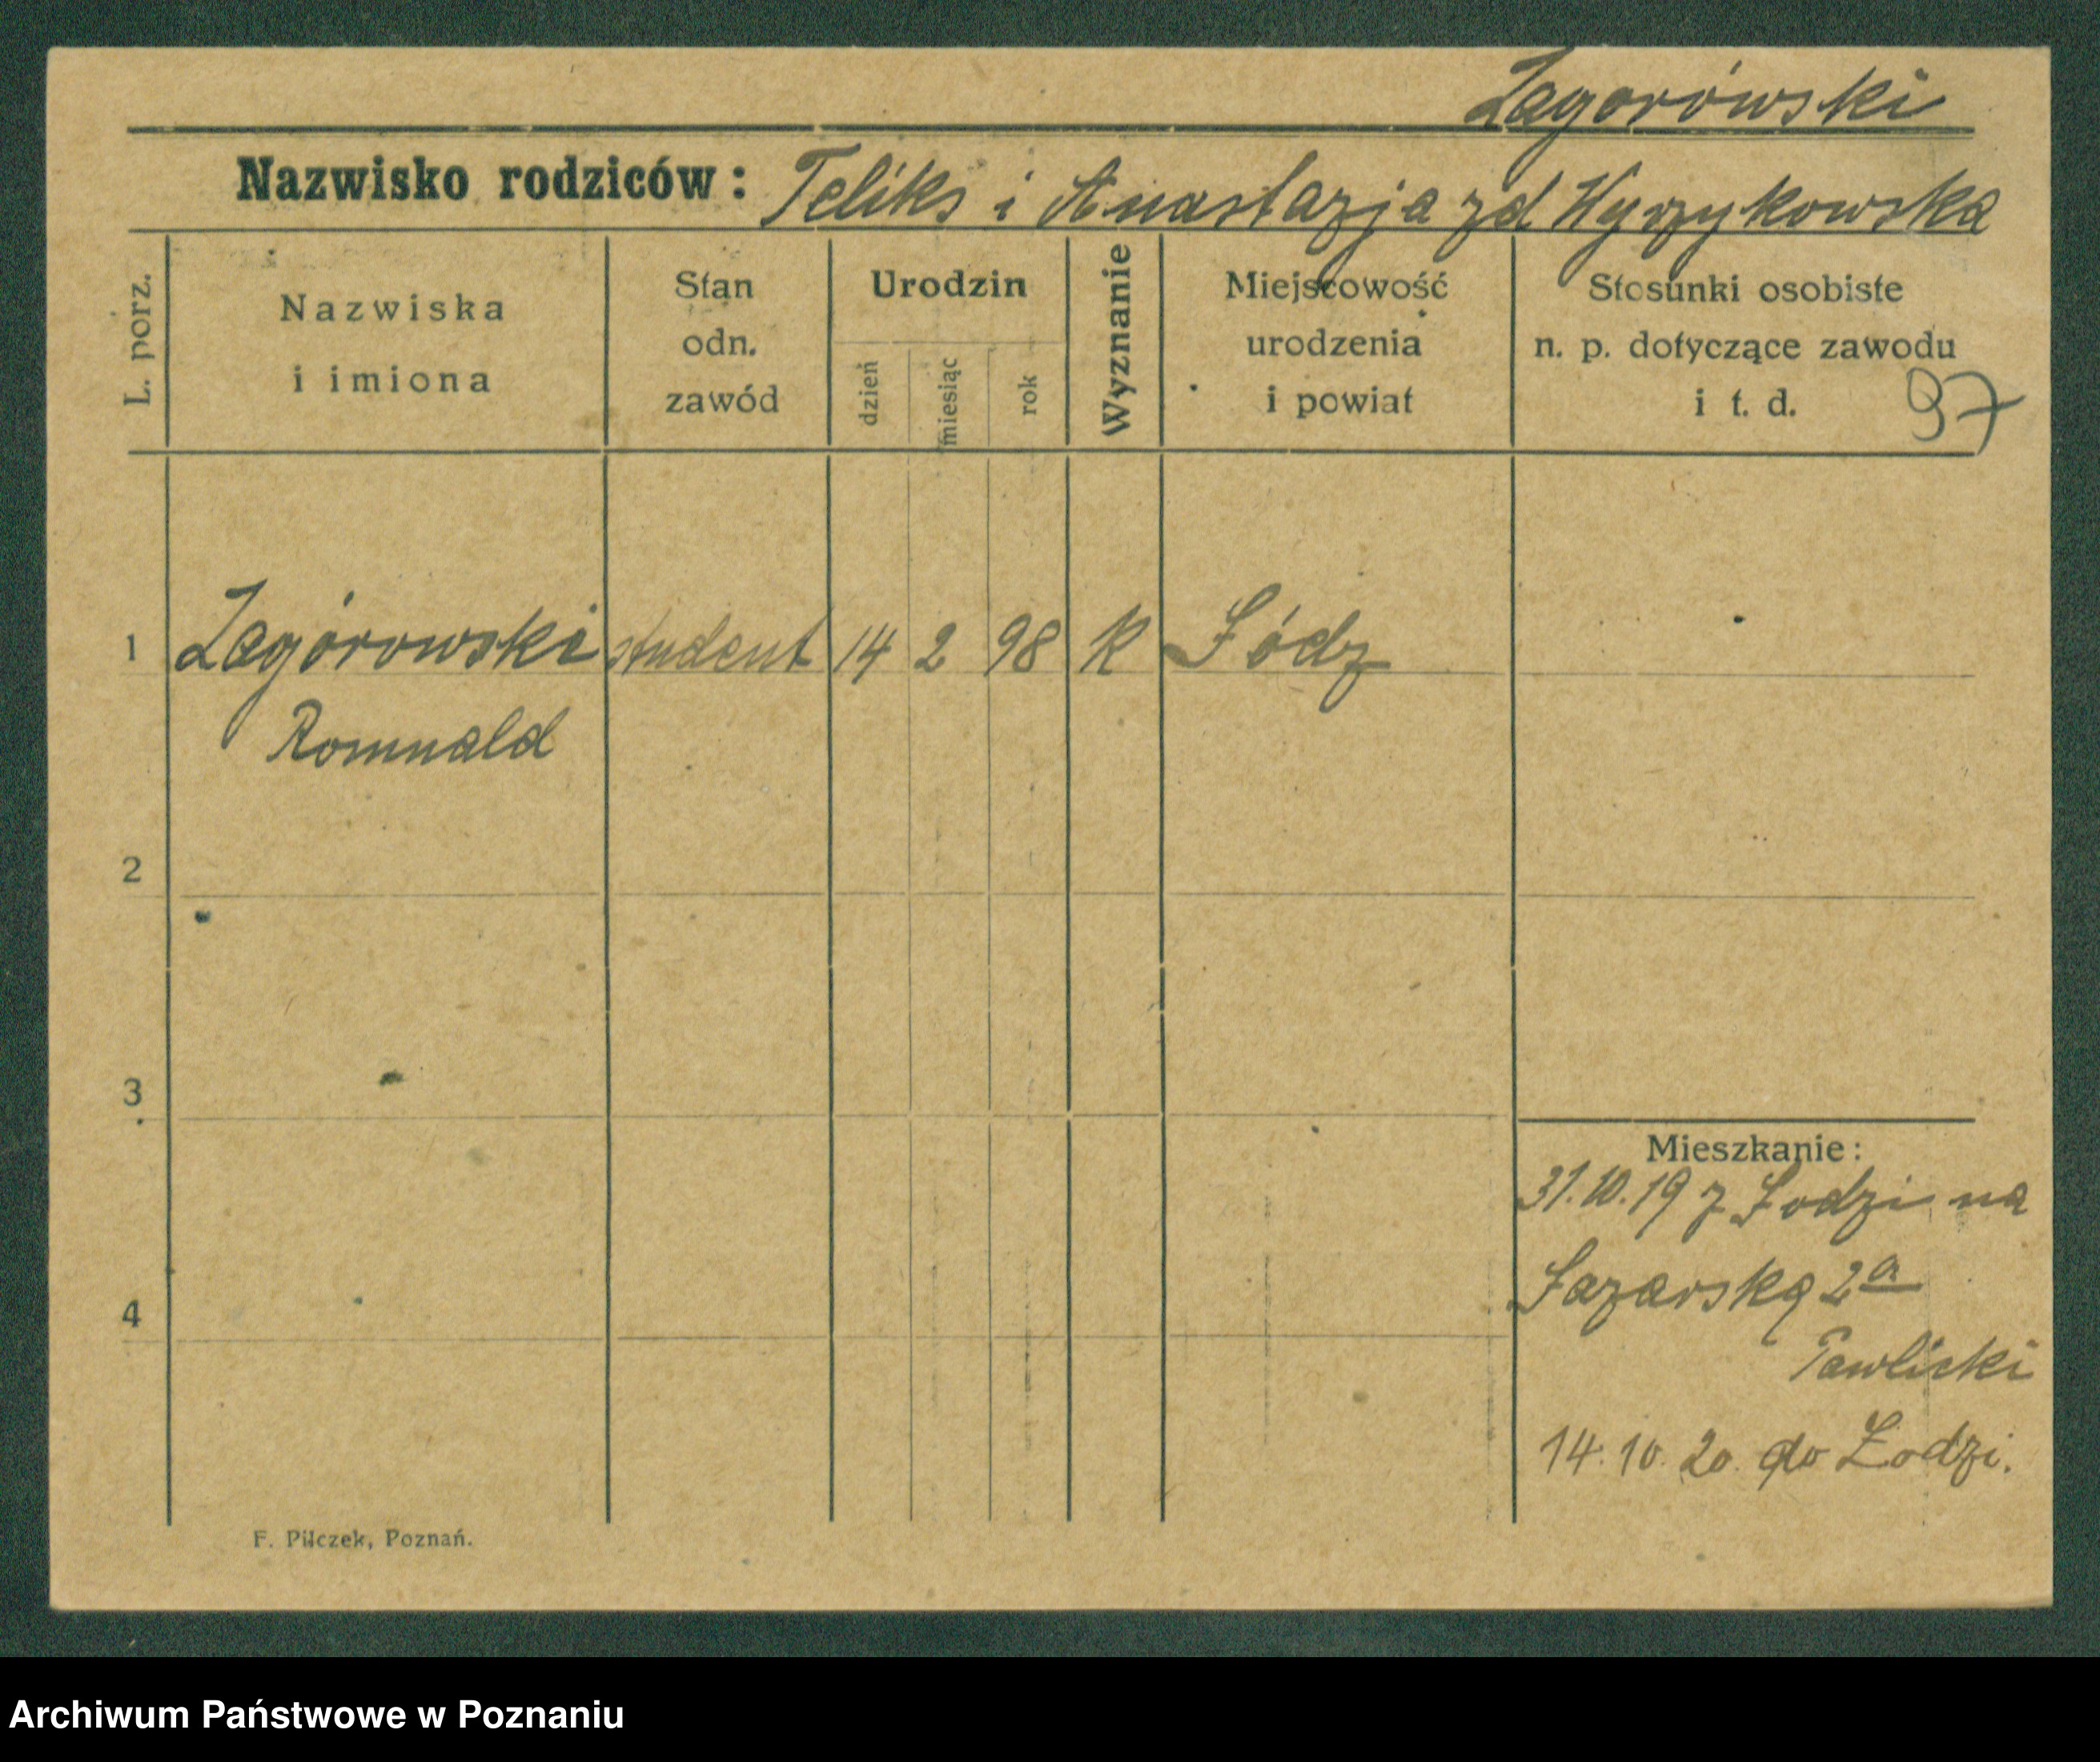 Zagorówski
Nazwisko rodziców: Feliks i Anastazja zd Wyrzykowska
L. porz.
Nazwiska i imiona
Stan odn. zawód
Urodzin
dzień
miesiąc
rok
Wyznanie
Miejscowość urodzenia i powiat
Stosunki osobiste n. p. dotyczące zawodu i t. d.
97
1 Zagórowski student 14 2 98 K Łódz
Romuald
2
3
4
Mieszkanie:
31.10.19 z Łodzi na
Łazarską 2a
Pawlicki
14.10.20. do Łodzi.
F. Pilczek, Poznań.
Archiwum Państwowe w Poznaniu